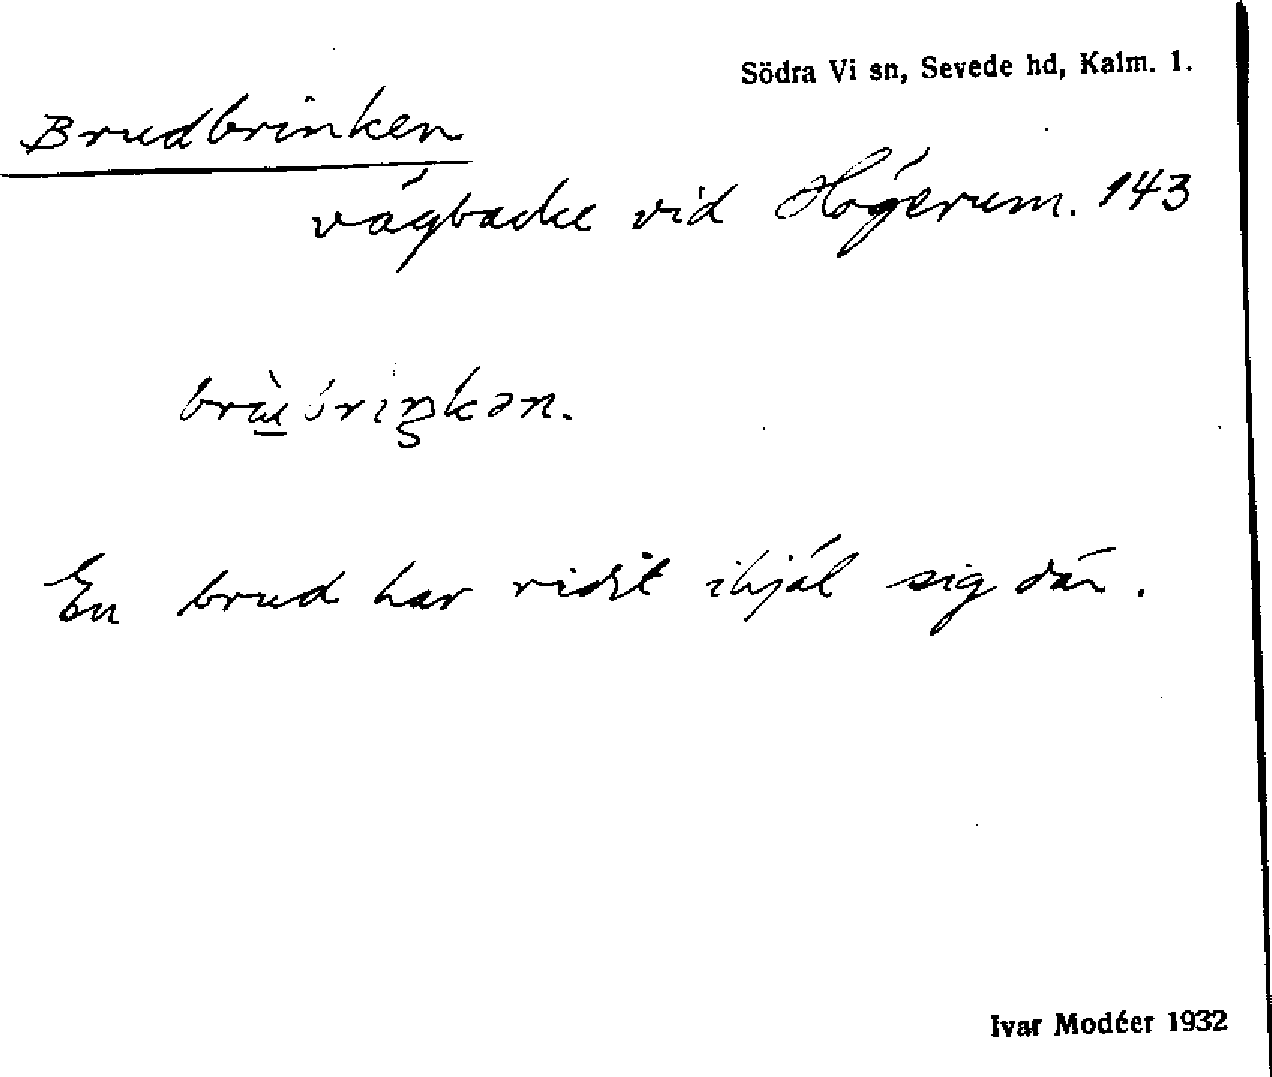 Södra Vi sn, Sevede hd, Kalm. l.
Brudbrinken
vägbacke vid Högerum. 143
brùbriŋkən.
En brud har ridit ihjäl sig där.
Ivar Modéer 1932